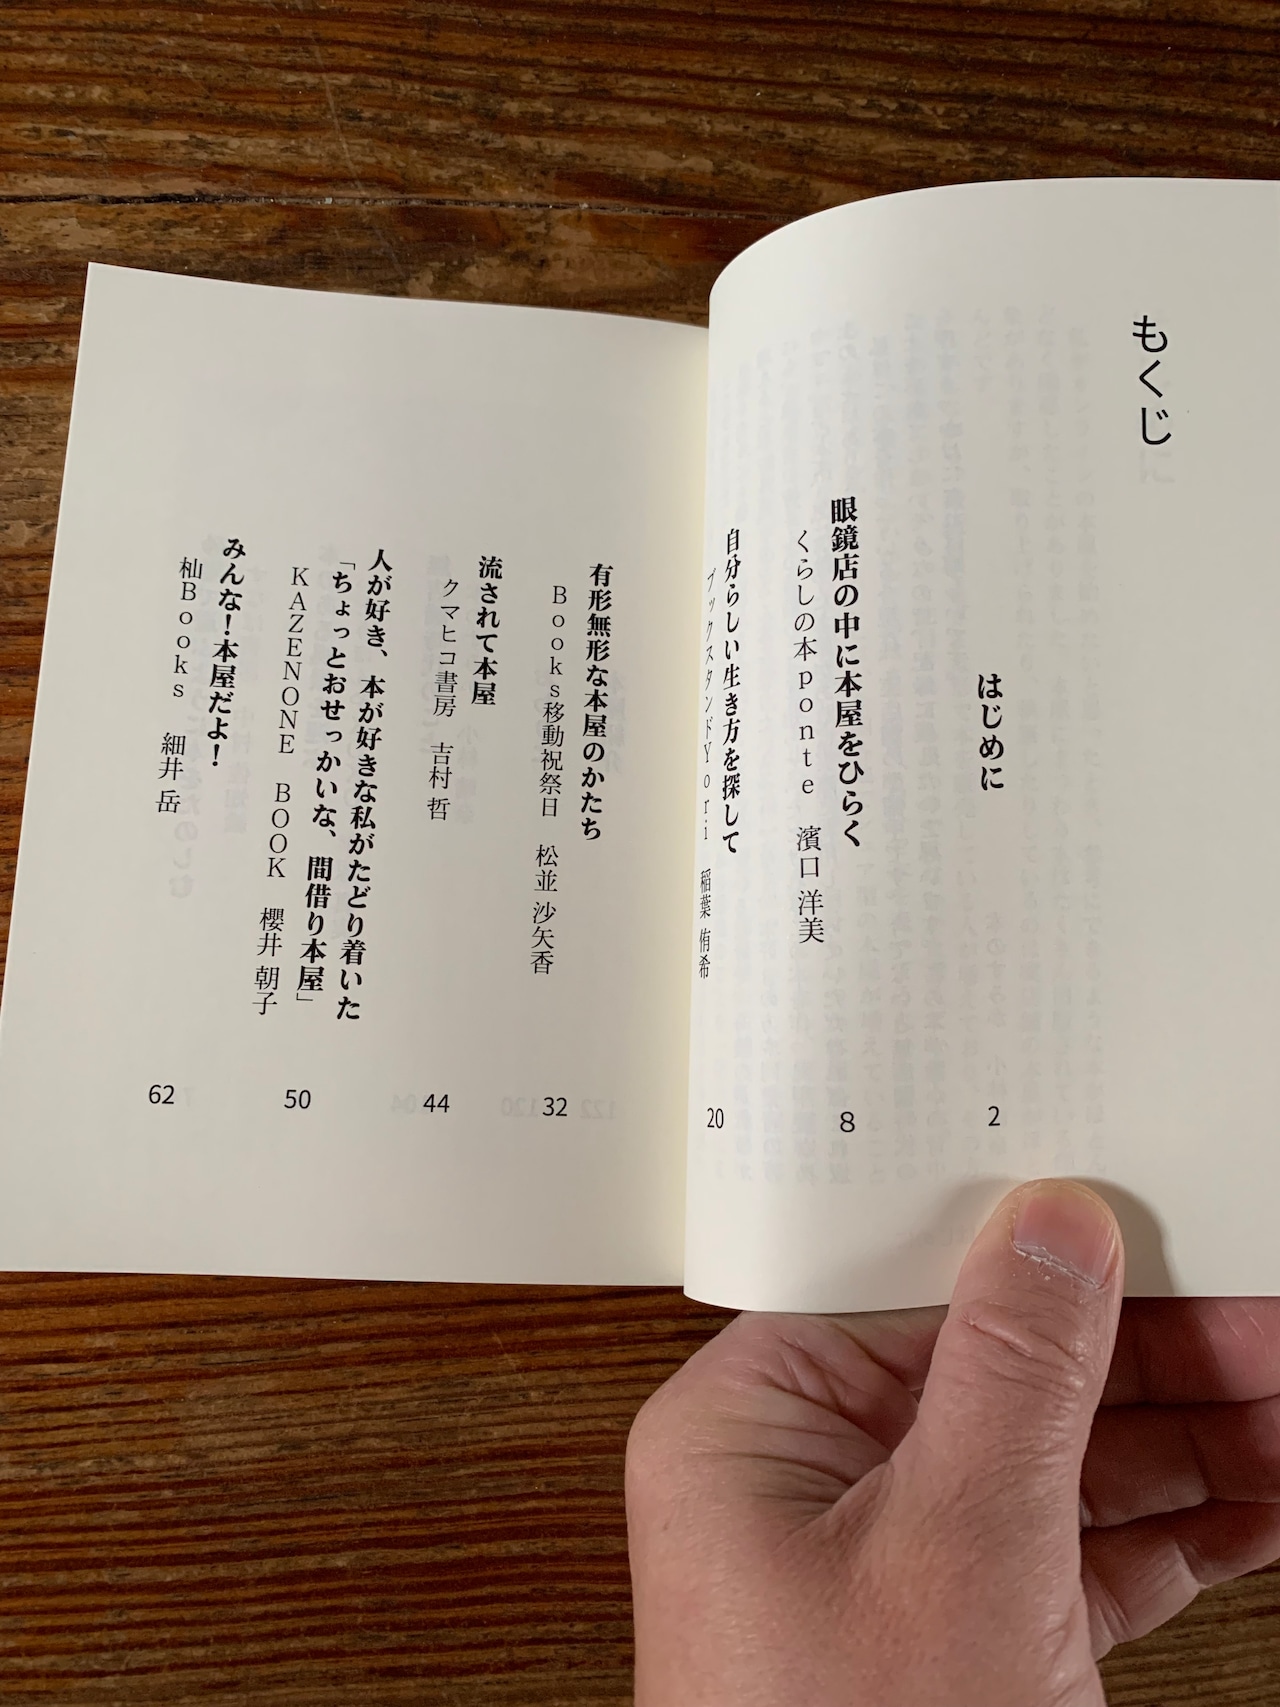 もくじ
はじめに
2
眼鏡店の中に本屋をひらく
くらしの本ponte 濱口 洋美
8
自分らしい生き方を探して
ブックスタンドYori 稲葉 侑希
20
有形無形な本屋のかたち
Books移動祝祭日 松並 沙矢香
32
流されて本屋
クマヒコ書房 吉村 哲
44
人が好き、本が好きな私がたどり着いた
「ちょっとおせっかいな、間借り本屋」
KAZENONE BOOK 櫻井 朝子
50
みんな!本屋だよ!
杣Books 細井 岳
62